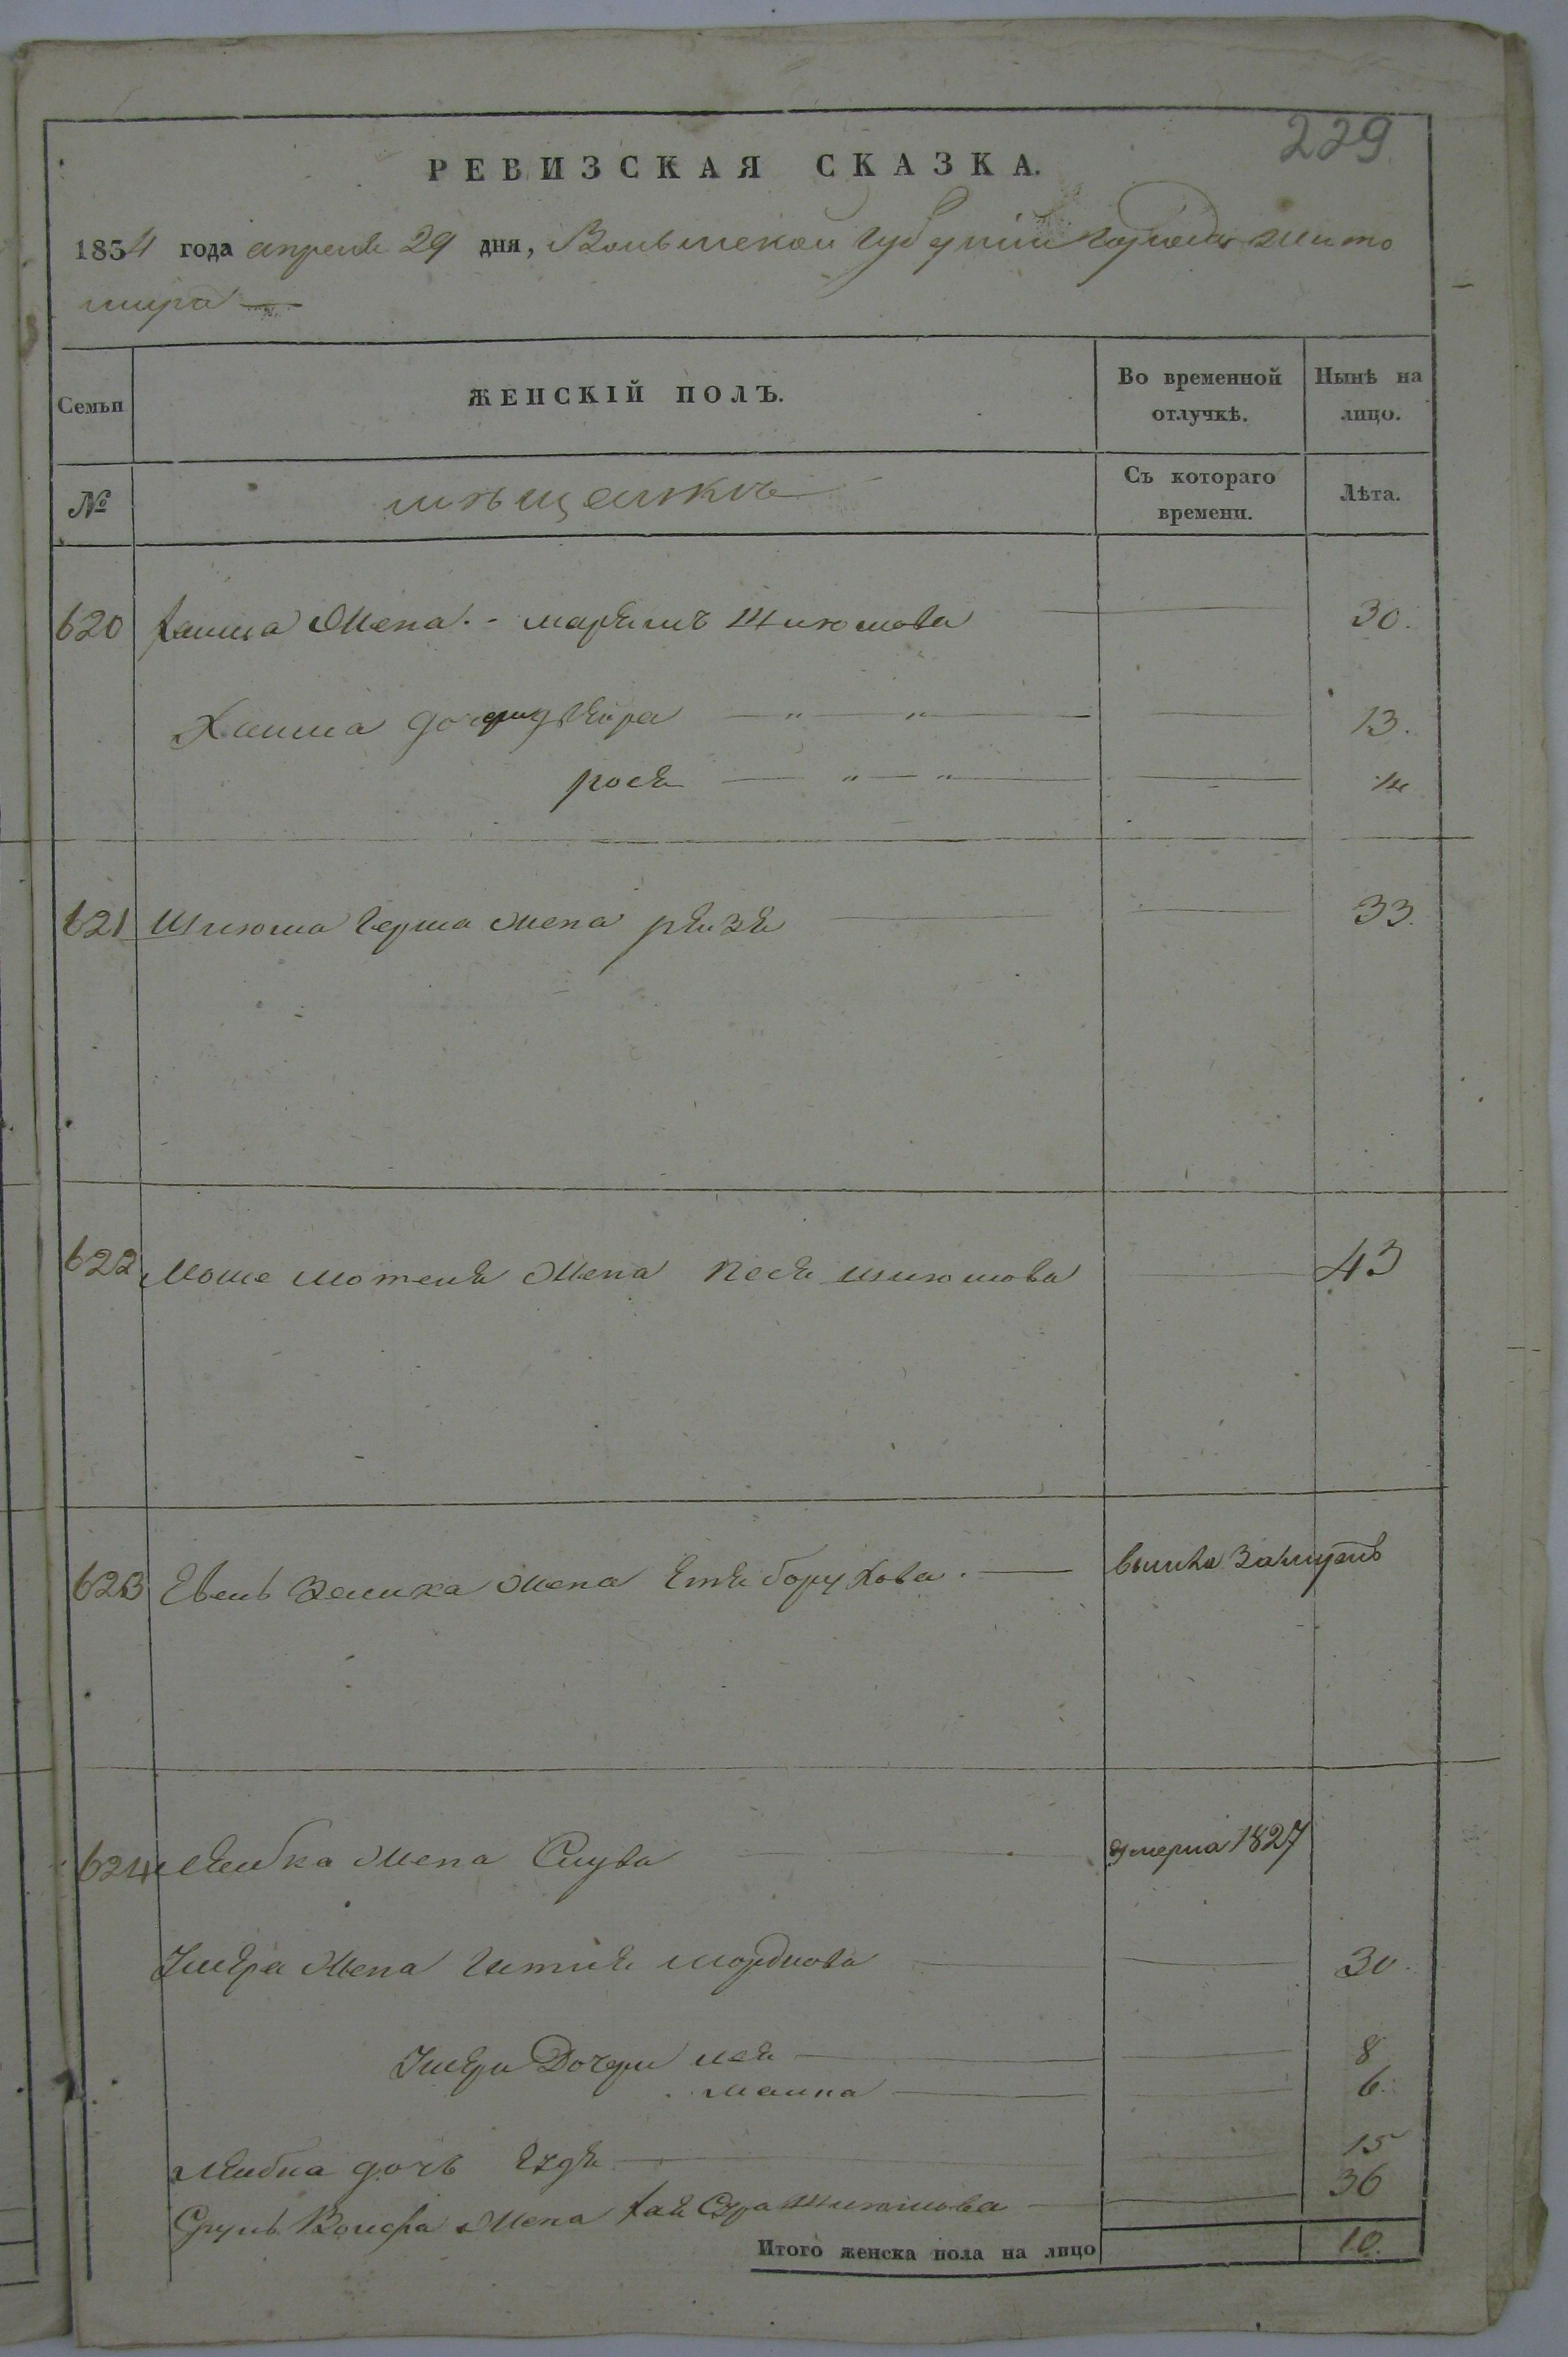 229
РЕВИЗСКАЯ СКАЗКА.
1834 года апреля 29 дня, Волынской губерніи города Жито
мира
Семьи ЖЕНСКІЙ ПОЛЪ. Во временной отлучкѣ. Нынѣ на лицо.
№ мѣщанка Съ котораго времени. Лѣта.
620 Хаима Жена. - Марямъ Шлюмова 30.
Хаима дочери Двойра 13.
рося
621 Шлюма Герша жена рейзя 33.
622 Моше Мотеля Жена Песя шлюмова 43
623 Зелика Жена Етя боруховa. вышла Замужъ
624 Лейбка Жена Слува умерла 1827
Жена Гитля Мордкова 30.
Дочери лея 8
Малка 6.
Лейбка дочь 15
Сруль Волфа Жена Хая Сура Шлюмова 36
Итого женска пола на лицо 10.